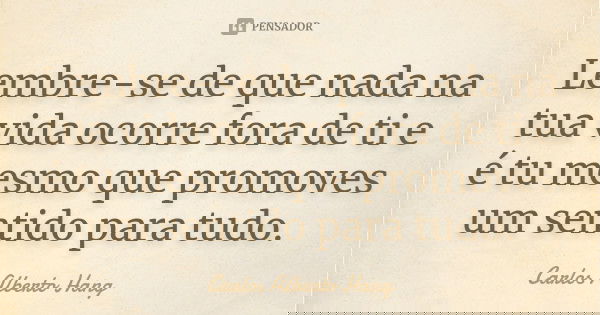 PENSADOR
Lembre-se de que nada na
tua vida ocorre fora de ti e
é tu mesmo que promoves
um sentido para tudo.
Carlos Alberto Hang